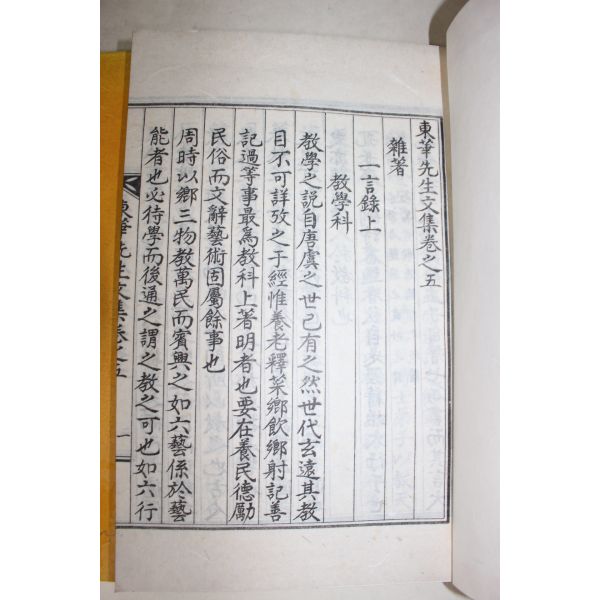 東華先生文集卷之五
雜著
一言錄上
教學科
教學之說自唐虞之世已有之然世代玄遠其教
目不可詳攷之于經惟養老釋菜鄉飲鄉射記善
記過等事最爲教科上著明者也要在養民德勵
民俗而文辭藝術固屬餘事也
周時以鄉三物教萬民而賓興之如六藝係於藝
能者也必待學而後通之謂之教之可也如六行
東華先生文集卷之五 一